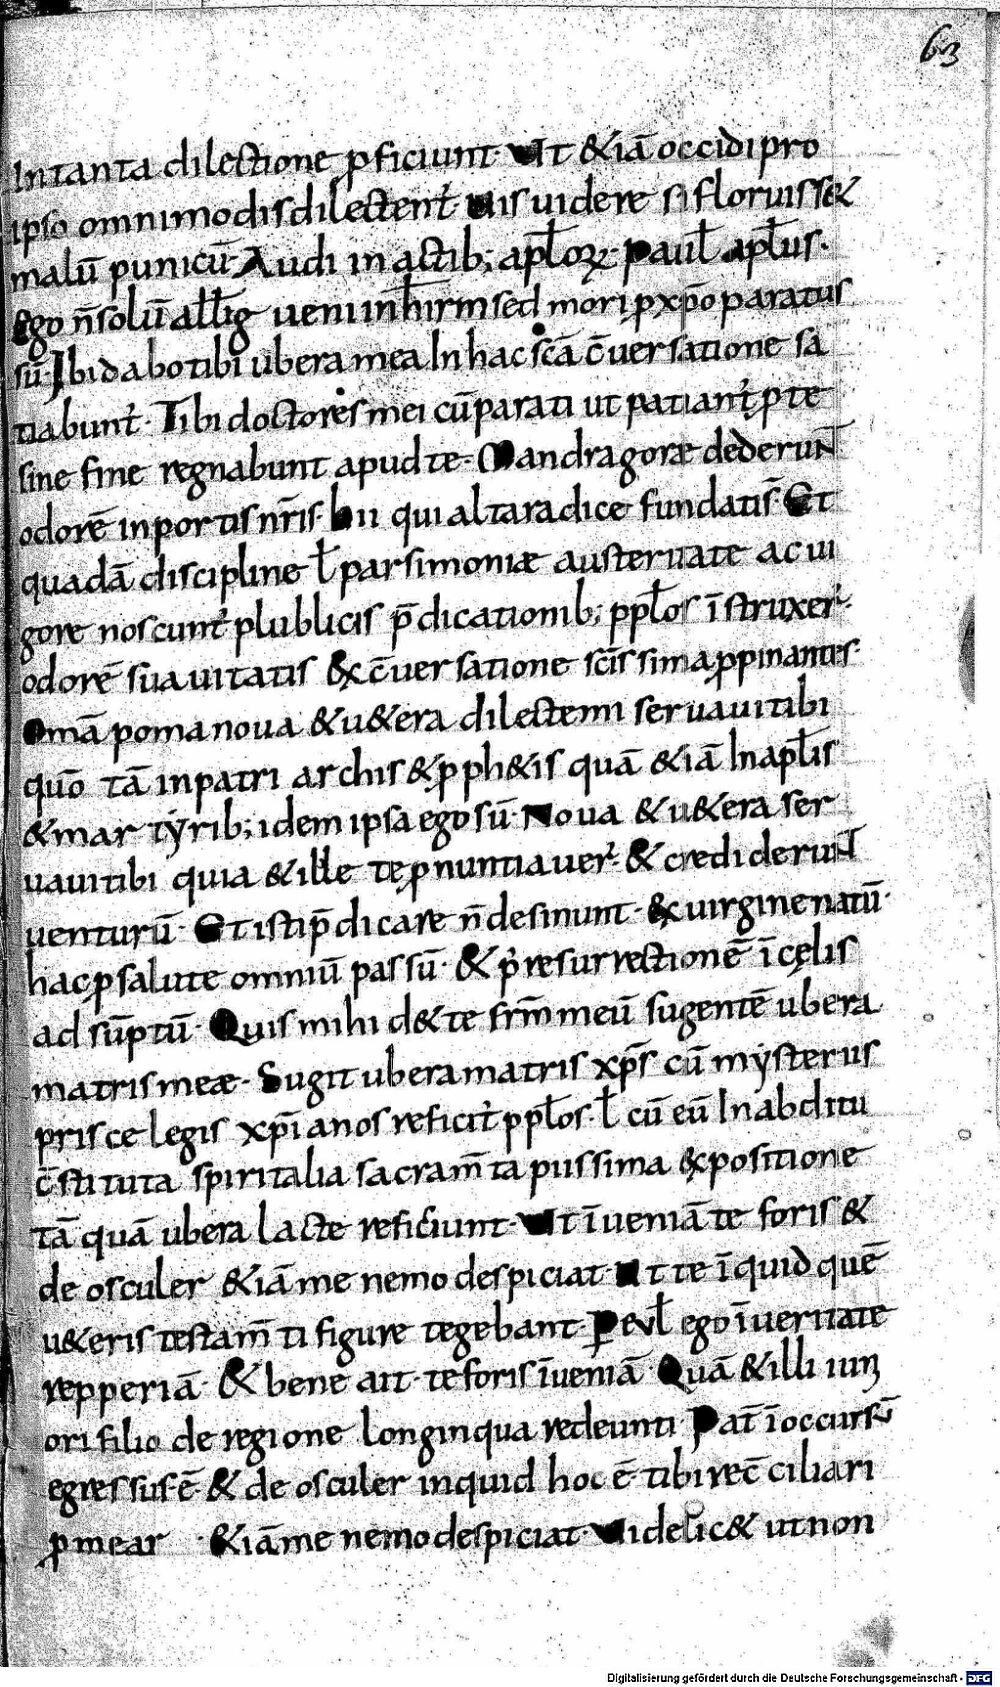 63
In tanta dilectione p̱ficiunt· Ut &iā occidi pro
ipso omnimodis dilectent᷑· Uis uidere si floruiss&
malū punicū· Audi in actib; apl̄oꝝ· Paul̄ apl̄us·
Ego n̄ solū alliḡ ueni in hirl̄m sed mori p̱ xp̄o paratus
sū· Ibi dabo tibi ubera mea In hac sc̄a c̄uersatione sa
tiabunt᷑· Tibi doctores mei cū parati ut patiant᷑ p̱ te
sine fine regnabunt apud te· Mandragoræ dederunt
odorē in portis nr̄is· hii qui alta radice fundatis̄· Et
quadā discipline l̄ parsimoniæ austeritate ac ui
gore noscunt᷑ plublicis p̄dicationib; ppl̄os īstruxer᷑·
odorē suauitatis & c̄uersatione sc̄issima p̱pinantes·
Omā poma noua & u&era dilectemi seruaui tibi
quō tā in patriarchis & p̱ph&is quā &iā In apl̄is
& martẏrib; idem ipsa ego sū· Noua & u&era ser
uaui tibi quia & ille te p̱nuntiauer᷑· & crediderunt
uenturū· Et isti p̄dicare n̄ desinunt· & uirgine natū·
hac p̱ salute omniū passū· & p᷑ resurrectionē ī cęlis
ad sūptū· Quis mihi d& te fr̄m meū sugentē ubera
matris meæ· Sugit ubera matris xp̄s cū mẏsteriis
prisce legis xp̄ianos reficit᷑ ppl̄os· l̄ cū eū In abditu
c̄stituta spiritalia sacram̄ta piissima expositione
tā quā ubera lacte reficiunt· Ut īueniā te foris &
de osculer &iā me nemo despiciat· Ut te īquid quē
u&eris testam̄ti figure tegebant· P eul̄ ego ī ueritate
repperiā· & bene ait· te foris īueniā· Quā & illi iun
ori filio de regione longinqua redeunti Pat̄ ī occursū
egressus ē· & de osculer inquid hoc ē tibi rec̄ciliari
p̱mear · &iā me nemo despiciat· Uidelic& ut non
Digitalisierung gefördert durch die Deutsche Forschungsgemeinschaft - DFG